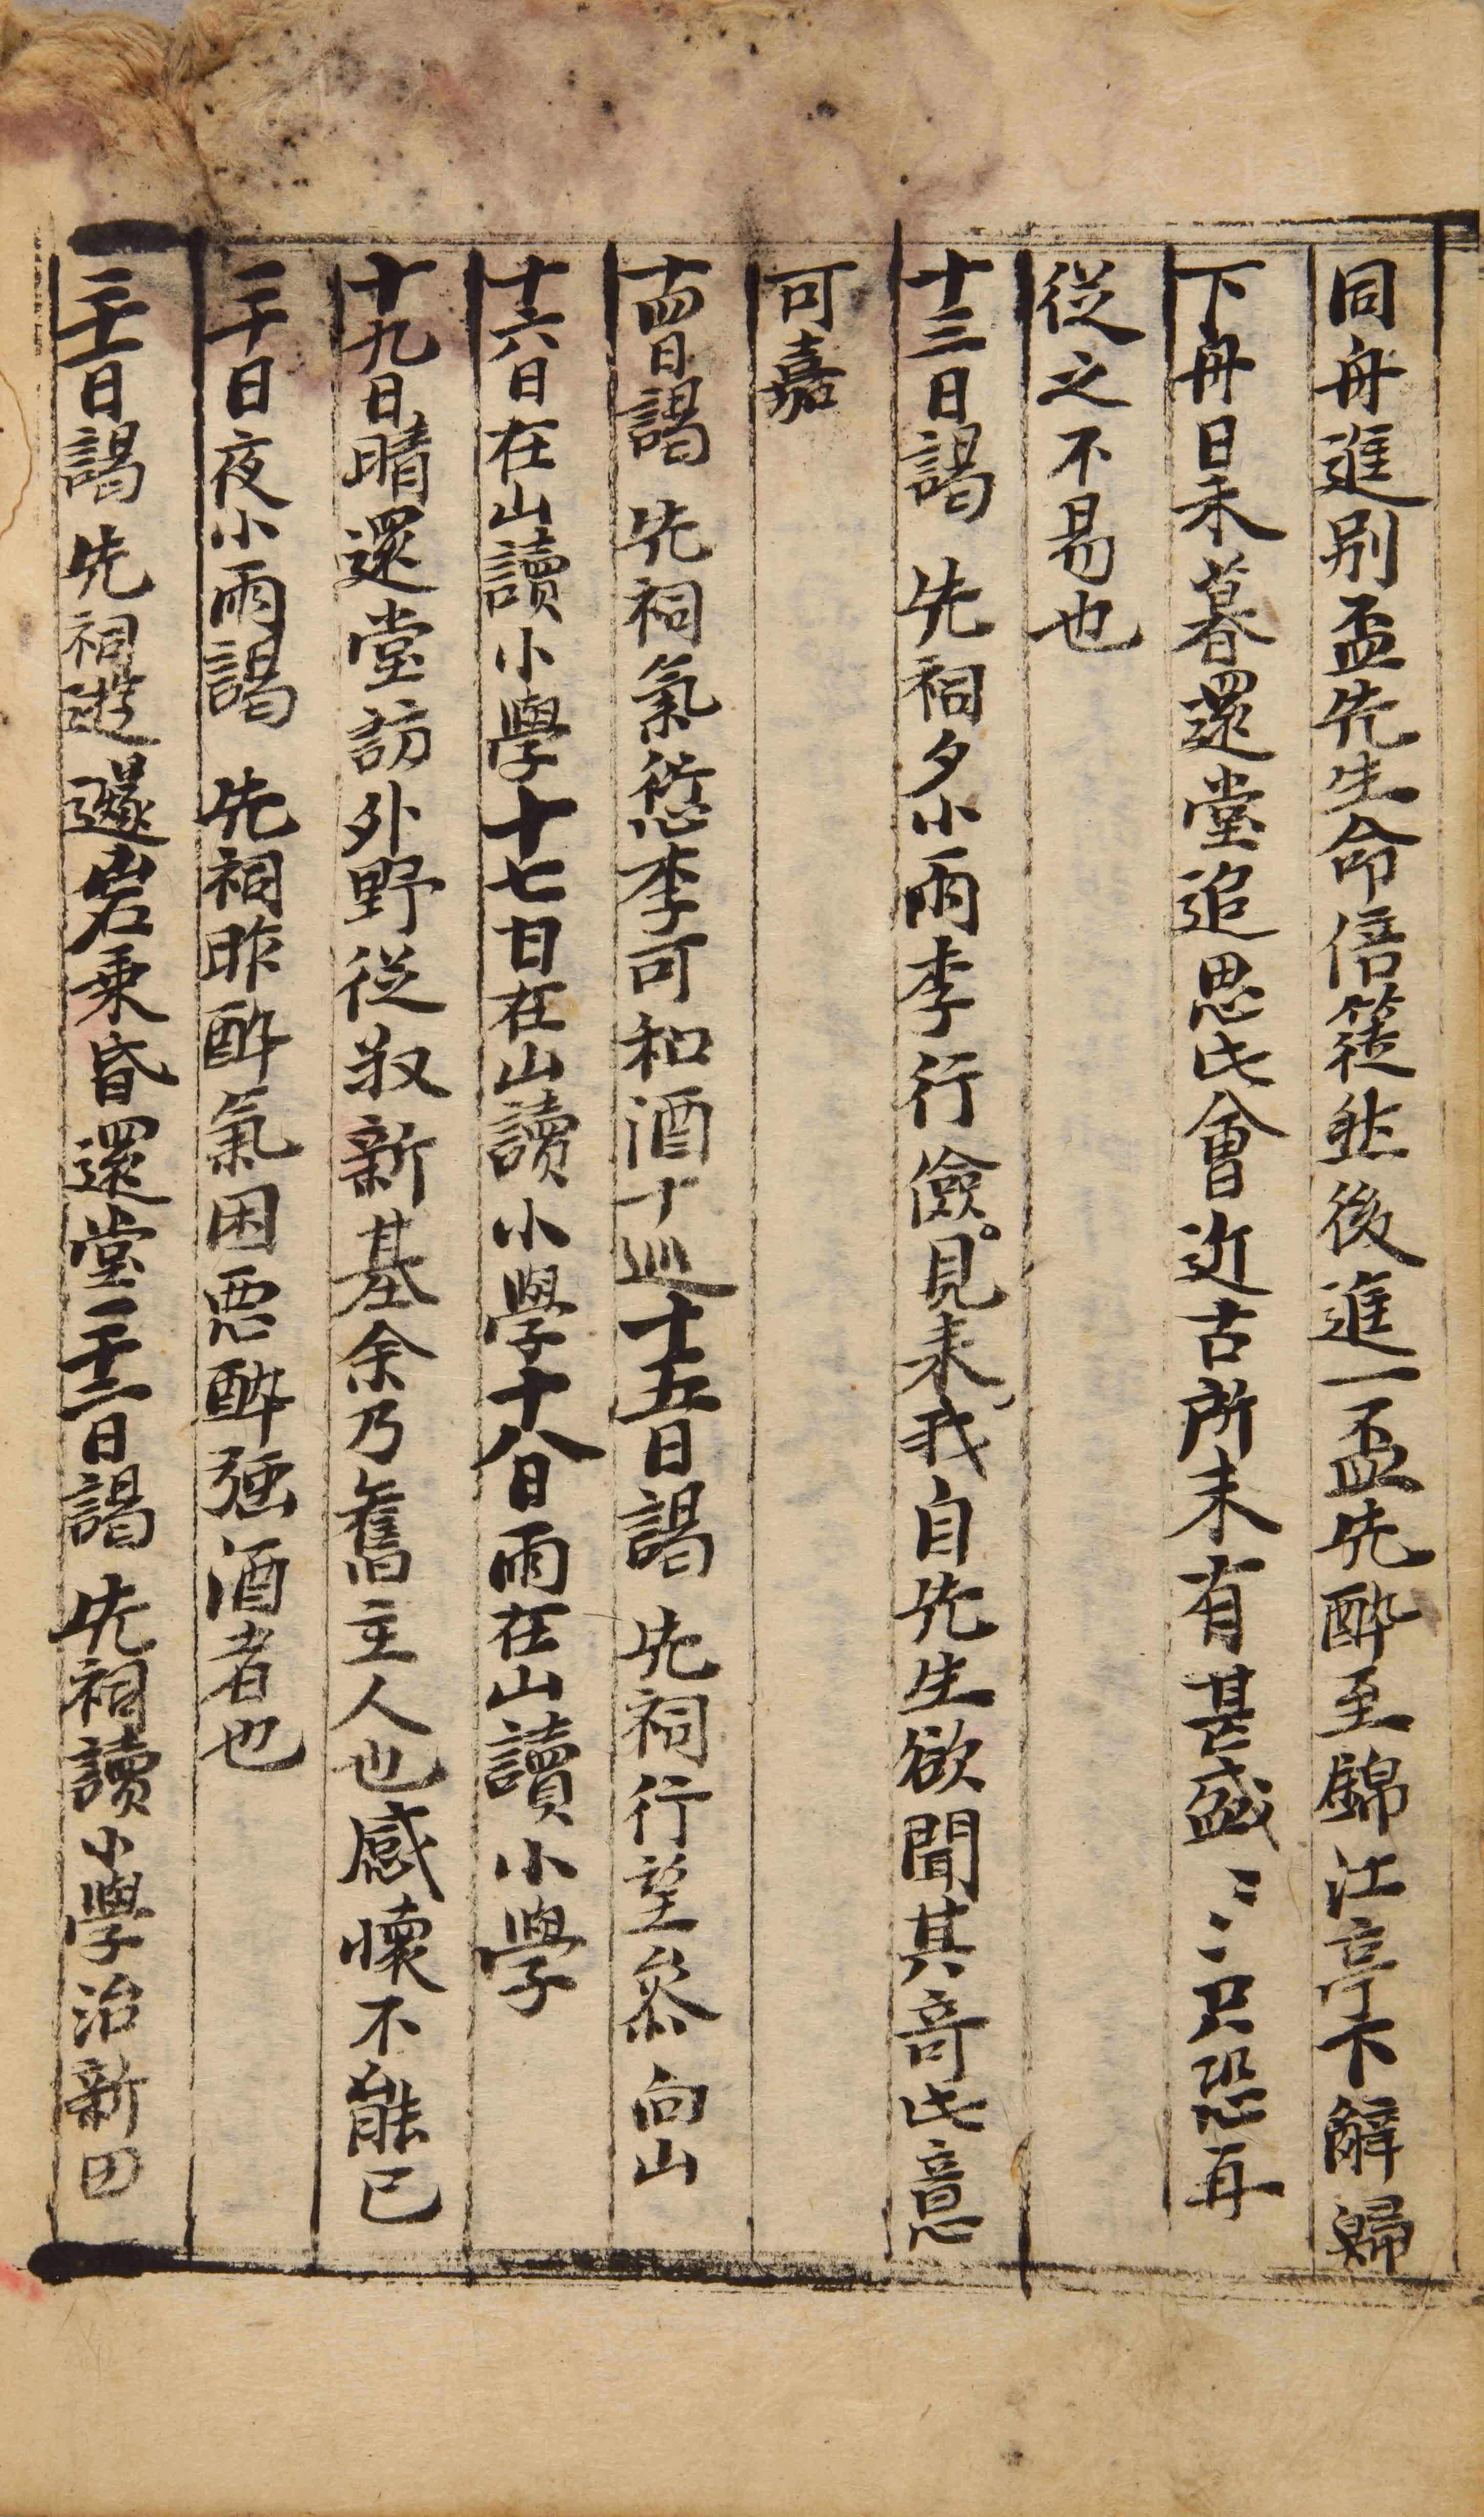 同舟進別盃先生命倍筵然後進一盃先醉至錦江亭下解歸
下舟日未暮還堂追思此會近古所未有甚盛〻〻只恐再
從之不易也
十三日謁 先祠夕小雨李行儉見来我自先生欲聞其奇此意
可嘉
十四日謁 先祠氣愆李可和酒十巡十五日謁 先祠行望叅向山
十六日在山讀小學十七日在山讀小學十八日雨在山讀小學
十九日晴還堂訪外野從叔新基余乃舊主人也感懷不能已
二十日夜小雨謁 先祠昨醉氣困悪醉强酒者也
二十一日謁 先祠遊邀岩乘昏還堂二十二日謁 先祠讀小學治新田